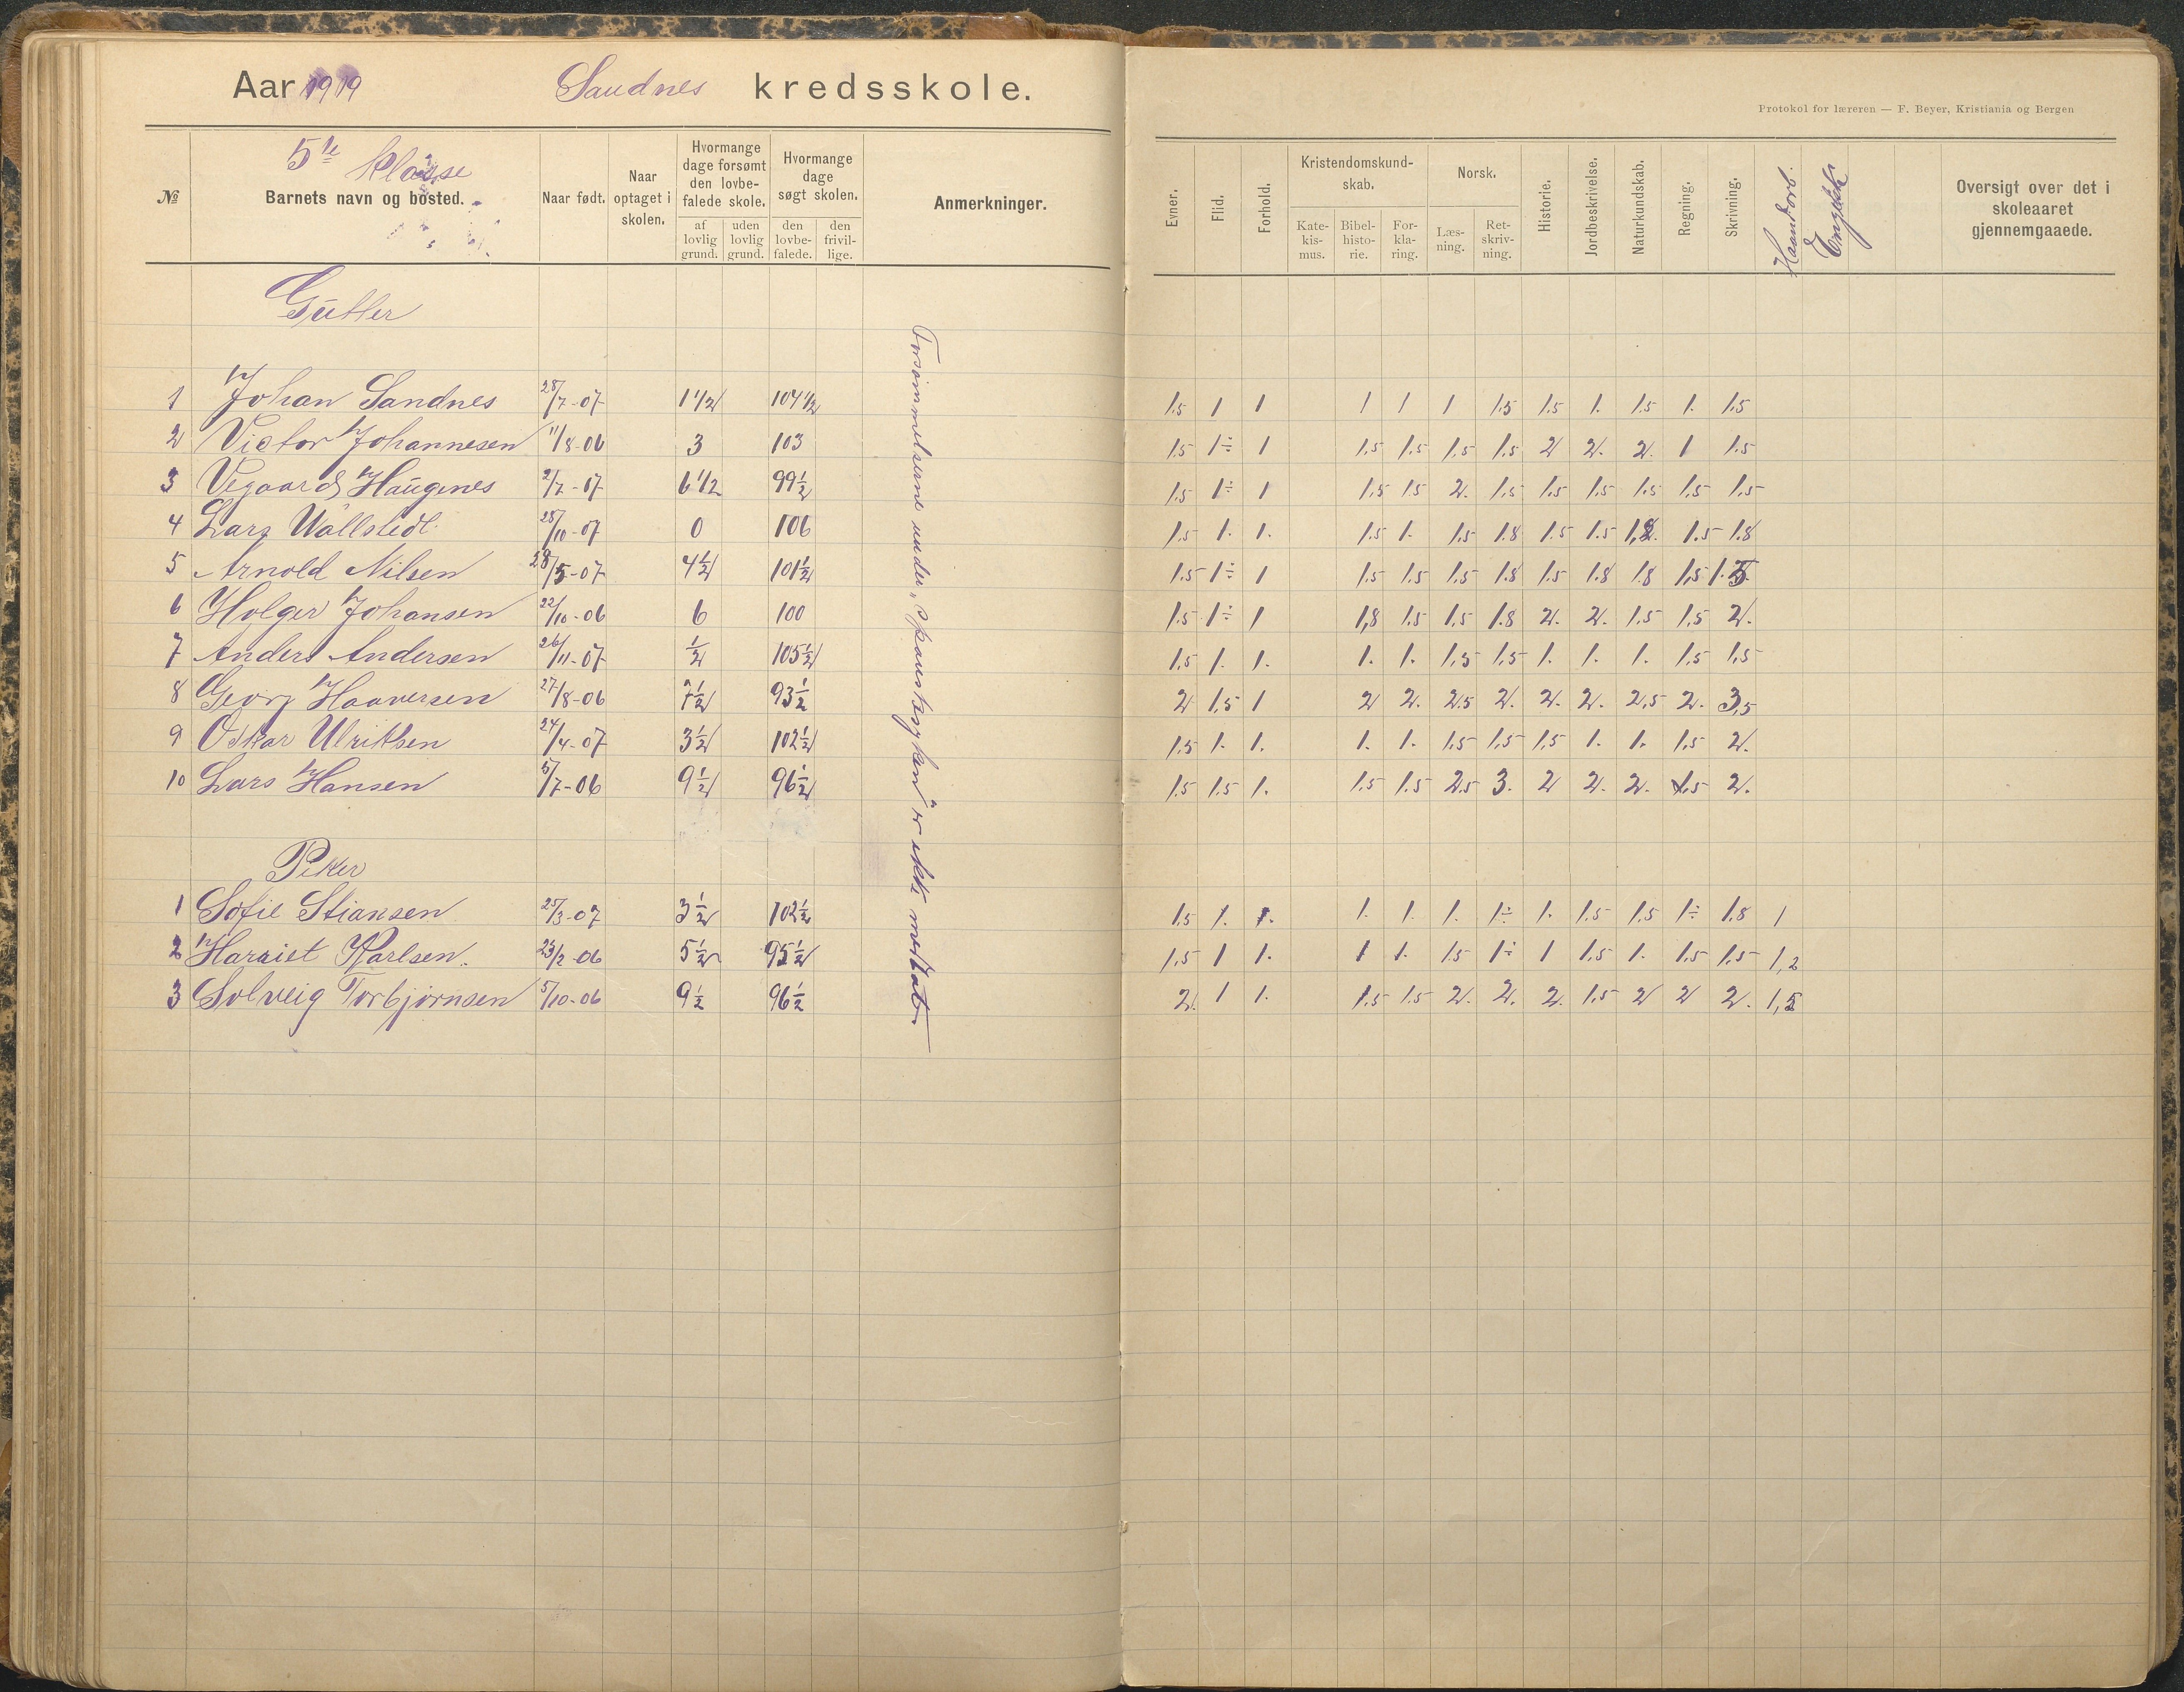 Aar 1919 Sandnes kredsskole.
Protokol for læreren — F. Beyer, Kristiania og Bergen
№
5te klasse
Barnets navn og bosted.
Naar født.
Naar optaget i skolen.
Hvormange dage forsømt den lovbe-falede skole.
af lovlig grund.
uden lovlig grund.
Hvormange dage søgt skolen.
den lovbe-falede.
den frivil-lige.
Anmerkninger.
Evner.
Flid.
Forhold.
Kristendomskund-skab.
Kate-kis-mus.
Bibel-histo-rie.
For-kla-ring.
Norsk.
Læs-ning.
Ret-skriv-ning.
Historie.
Jordbeskrivelse.
Naturkundskab.
Regning.
Skrivning.
Haandarb.
Engelsk
Oversigt over det i skoleaaret gjennemgaaede.
Gutter
1 Johan Sandnes 28/7-07 1 1/2 104 1/2 1.5 1 1 1 1 1 1.5 1.5 1. 1.5 1. 1.5
2 Victor Johannesen 11/8-06 3 103 1.5 1÷ 1 1.5 1.5 1.5 1.5 2 2. 2. 1 1.5
3 Vegaard Haugenes 2/7-07 6 1/2 99 1/2 1.5 1÷ 1 1.5 1.5 2. 1.5 1.5 1.5 1.5 1.5 1.5
4 Lars Wallstedt 28/10-07 0 106 1.5 1. 1. 1.5 1. 1.5 1.8 1.5 1.5 1,8. 1.5 1.8
5 Arnold Nilsen 28/5-07 4 1/2 101 1/2 1.5 1÷ 1 1.5 1.5 1.5 1.8 1.5 1.8 1.8 1,5 1.5
6 Holger Johansen 22/10-06 6 100 1.5 1÷ 1 1,8 1.5 1.5 1.8 2. 2. 1.5 1.5 2.
7 Anders Andersen 26/11-07 1/2 105 1/2 1.5 1. 1. 1. 1. 1.5 1.5 1. 1. 1. 1.5 1.5
8 Georg Haaversen 27/8-06 7 1/2 93 1/2 2 1.5 1 2 2. 2.5 2. 2. 2. 2,5 2. 3,5
9 Oskar Ulriksen 24/4-07 3 1/2 102 1/2 1.5 1. 1. 1. 1. 1.5 1.5 1.5 1. 1. 1.5 2.
10 Lars Hansen 5/7-06 9 1/2 96 1/2 1.5 1.5 1. 1.5 1.5 2.5 3. 2 2. 2. 1.5 2.
Piker
1 Sofie Stiansen 25/3-07 3 1/2 102 1/2 1.5 1. 1. 1. 1. 1. 1÷ 1. 1.5 1.5 1÷ 1.8 1
2 Harriet Karlsen. 23/2-06 5 1/2 95 1/2 1.5 1 1. 1 1. 1.5 1÷ 1 1.5 1. 1.5 1.5 1,2
3 Solveig Torbjørnsen 5/10-06 9 1/2 96 1/2 2. 1 1. 1.5 1.5 2. 2. 2. 1.5 2 2 2. 1,5
Forsømmelserne under „spanskesyken" er ikke medtat